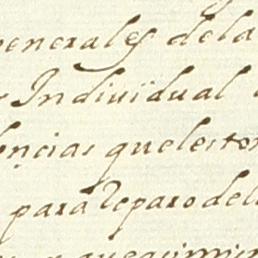 generales dela
Indiuidual
encias queleston
para Reparo del